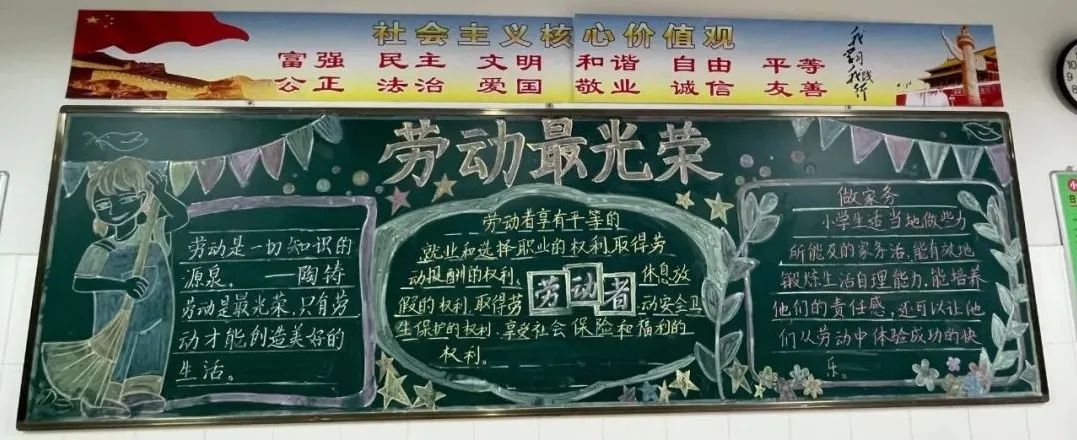 社会主义核心价值观
富强 民主 文明 和谐 自由 平等
公正 法治 爱国 敬业 诚信 友善
劳动最光荣
劳动是一切知识的
源泉。——陶铸
劳动是最光荣,只有劳
动才能创造美好的
生活。
劳动者享有平等的
就业和选择职业的权利、取得劳
动报酬的权利、 休息放
假的权利、取得劳 动安全卫
生保护的权利、享受社会保险和福利的
权利。
劳动者
做家务
小学生适当地做些力
所能及的家务活,能有效地
锻炼生活自理能力,能培养
他们的责任感,还可以让他
们从劳动中体验成功的快
乐。
10
9
8